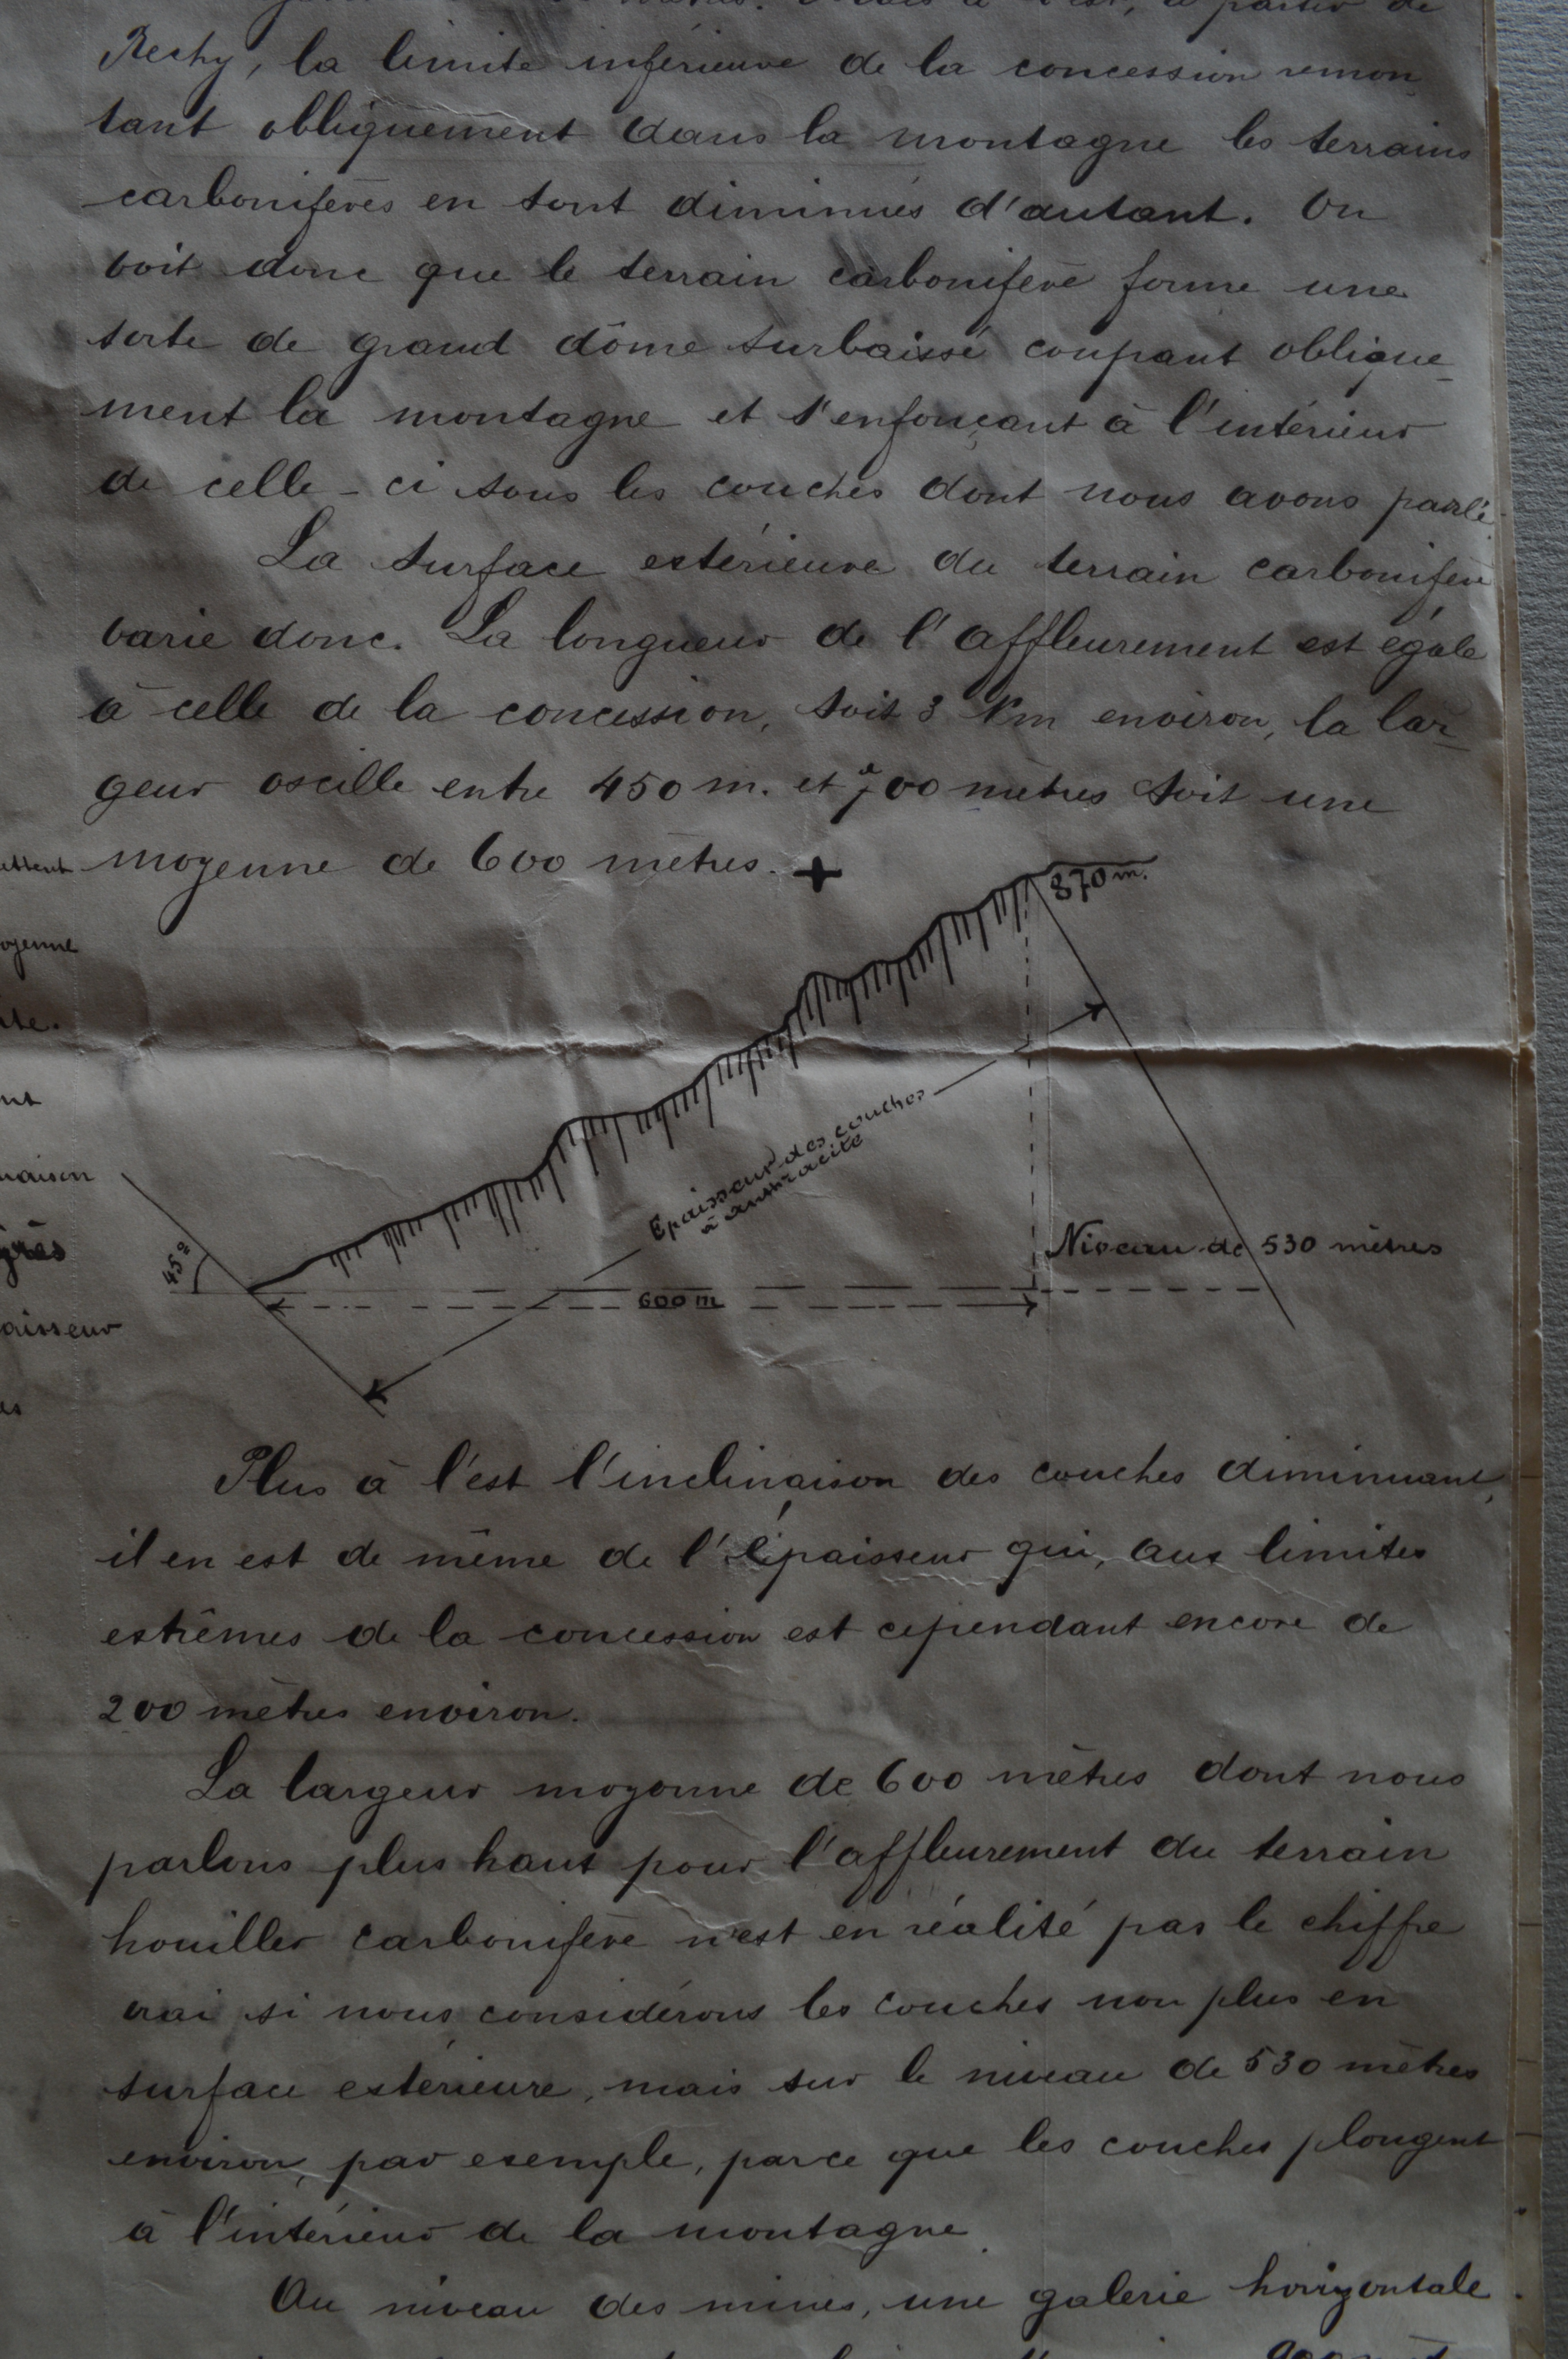 Rechy, la limite inférieure de la concession remon
tant obliquement dans la montagne les terrains
carbonifères en sont diminués d'autant. On
voit donc que le terrain carbonifère forme une
sorte de grand dôme surbaissé coupant oblique_
ment la montagne et s'enfonçant à l'intérieur
de celle-ci sous les couches dont nous avons parlé.
La surface extérieure du terrain carbonifère
varie donc. La longueur de l'affleurement est égale
à celle de la concession, soit 3 Km environ, la lar_
geur oscille entre 450 m. et 700 mètres soit une
moyenne de 600 mètres. +
870 m.
Epaisseur des couches
à anthracite
45°
Niveau de 530 mètres
600 m
Plus à l'est l'inclinaison des couches diminuant,
il en est de même de l'épaisseur qui, aux limites
extrêmes de la concession est cependant encore de
200 mètres environ.
La largeur moyenne de 600 mètres dont nous
parlons plus haut pour l'affleurement du terrain
houiller carbonifère n'est en réalité pas le chiffre
vrai si nous considérons les couches non plus en
surface extérieure, mais sur le niveau de 530 mètres
environ, par exemple, parce que les couches plongent
à l'intérieur de la montagne.
Au niveau des mines, une galerie horizontale